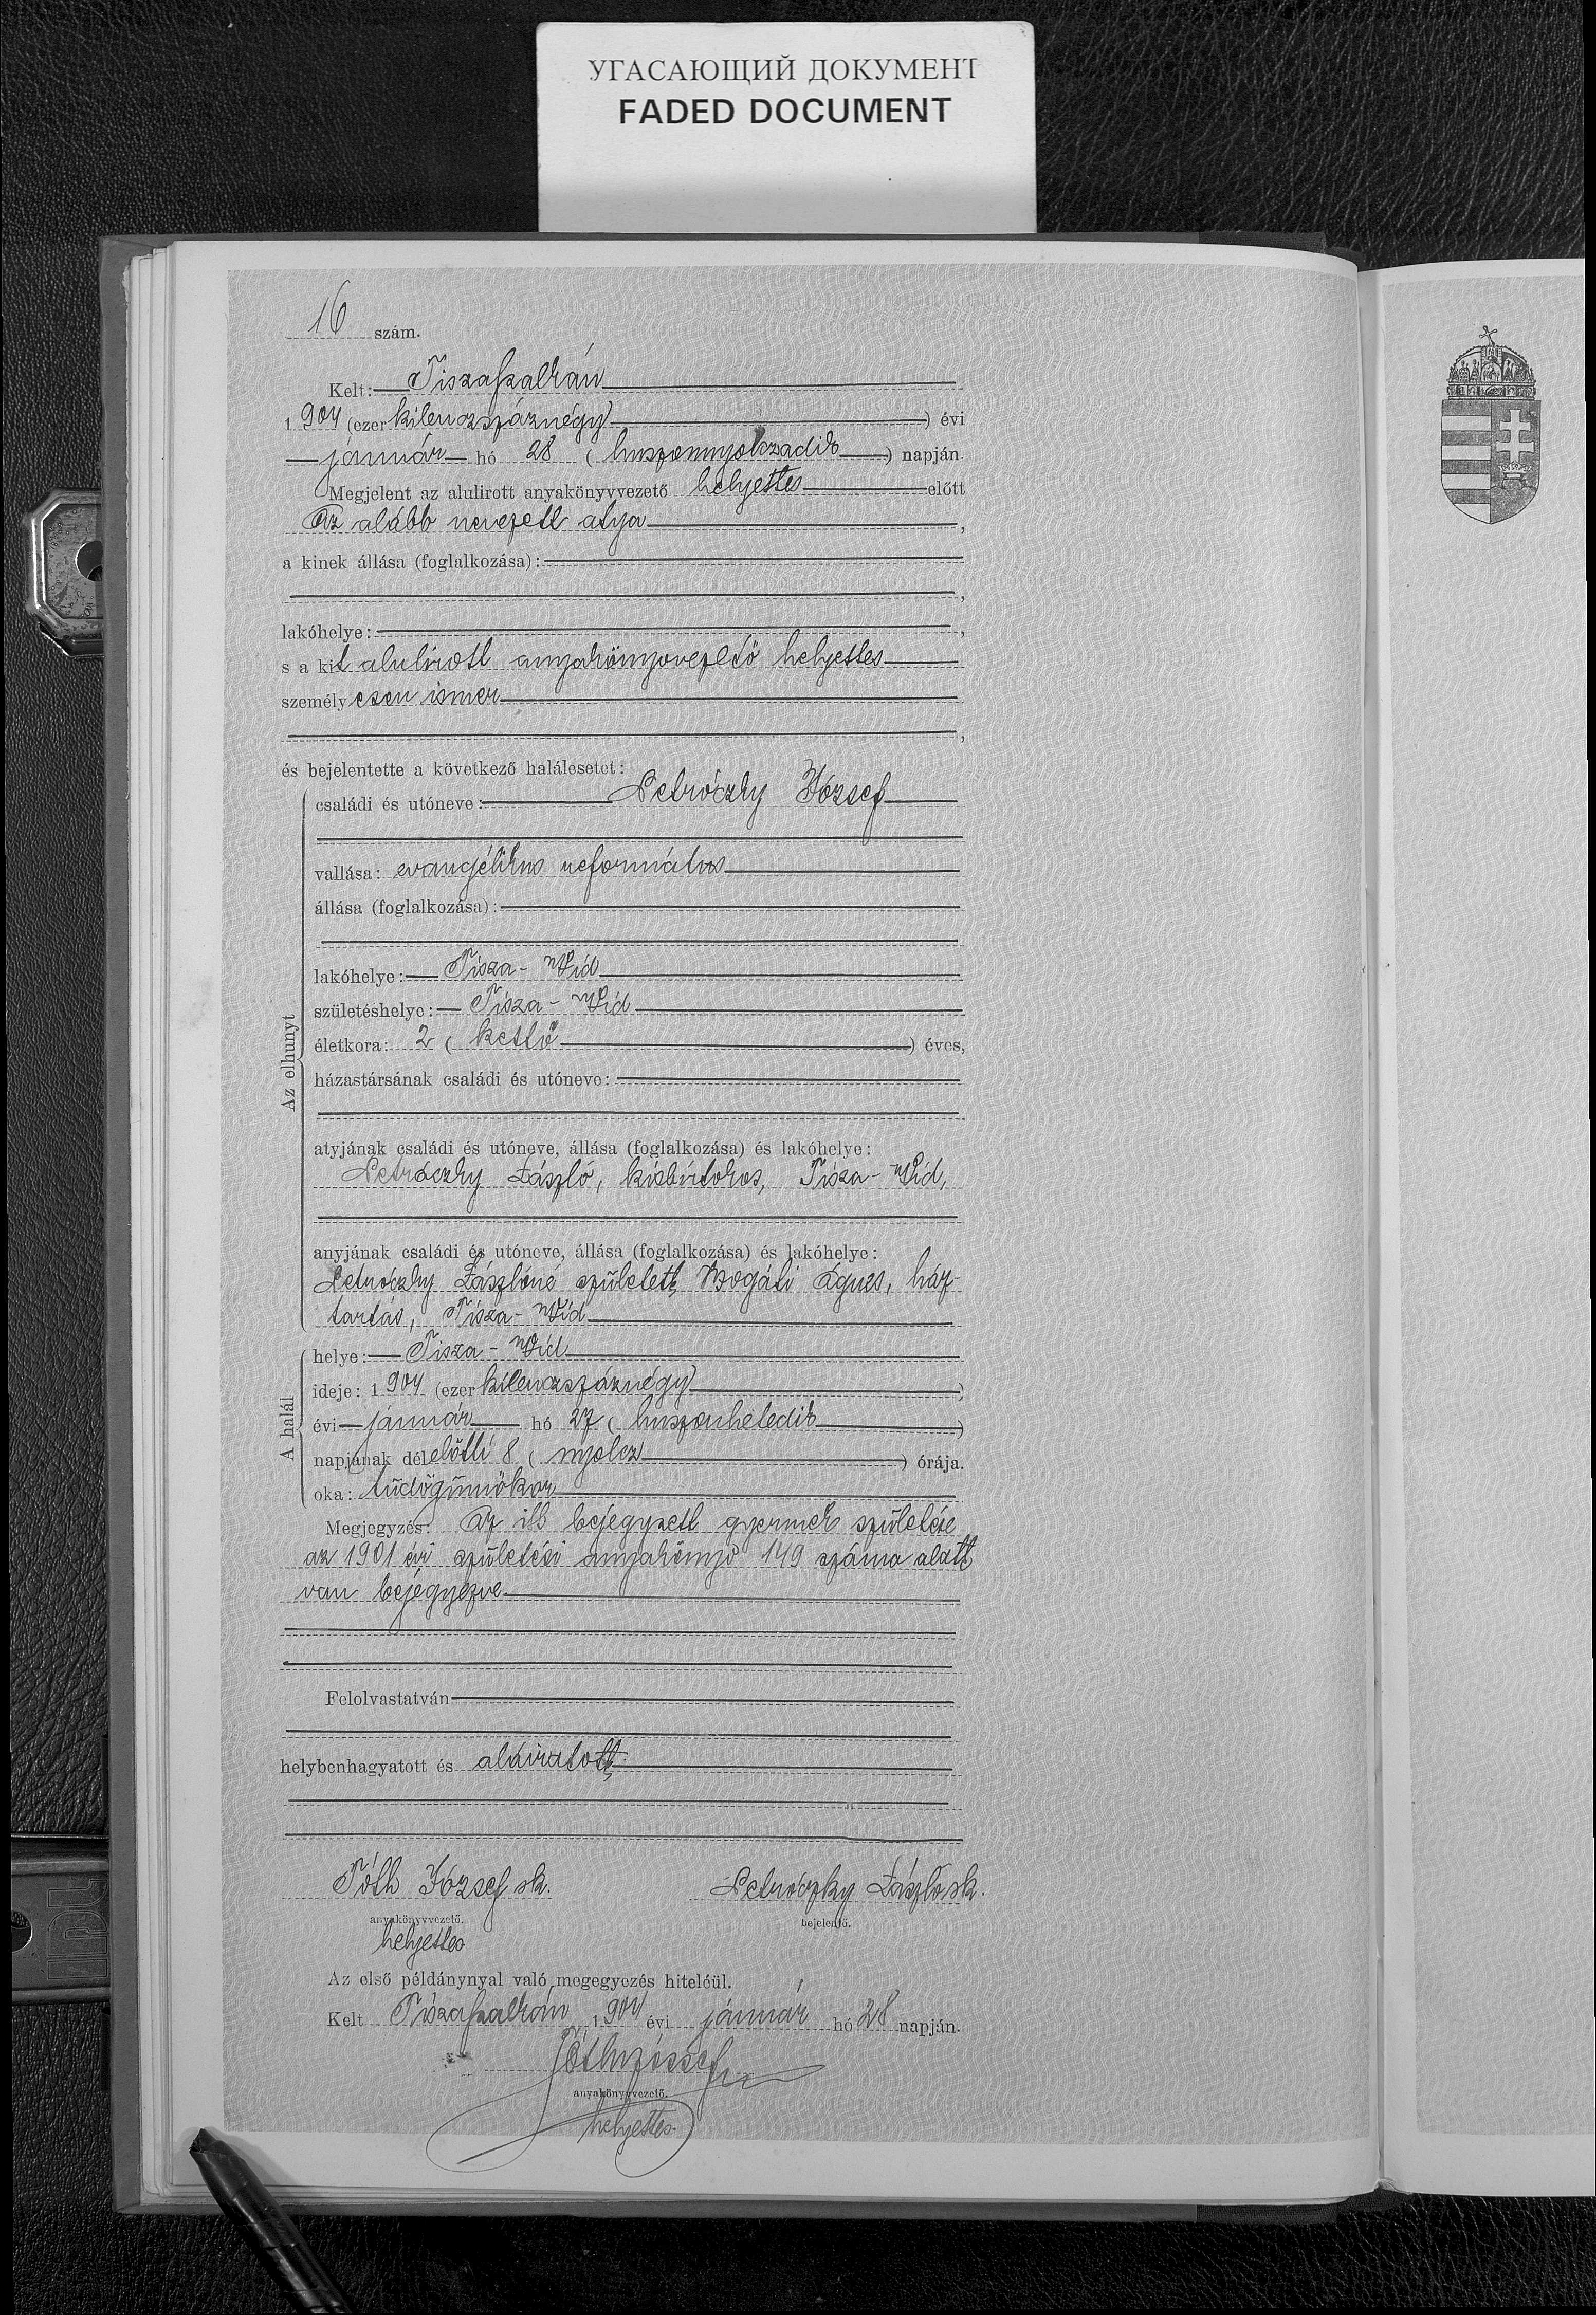 УГАСАЮЩИЙ ДОКУМЕНТ
FADED DOCUMENT
16 szám.
Kelt: Tiszaszalkán
1904 (ezer kilenczszáznégy) évi
január hó 28 (huszonnyolczadik) napján.
Megjelent az alulirott anyakönyvvezető helyettes előtt
az alább nevezett atya,
a kinek állása (foglalkozása):
,
lakóhelye: ,
s a kit alulirott anyakönyvvezető helyettes
személyesen ismer
,
és bejelentette a következő halálesetet:
Az elhunyt
családi és utóneve: Petróczky József
vallása: evangélikus református
állása (foglalkozása):
lakóhelye: Tisza-Vid
születéshelye: Tisza-Vid
életkora: 2 (kettő) éves,
házastársának családi és utóneve:
atyjának családi és utóneve, állása (foglalkozása) és lakóhelye:
Petróczky László, kisbirtokos, Tisza-Vid,
anyjának családi és utóneve, állása (foglalkozása) és lakóhelye:
Petróczky Lászlóné született Bogáti Ágnes, ház-
tartás, Tisza-Vid
A halál
helye: Tisza-Vid
ideje: 1904 (ezer kilenczszáznégy)
évi január hó 27 (huszonhetedik)
napjának délelőtti 8 (nyolcz) órája.
oka: tüdőgümőkor
Megjegyzés: Az itt bejegyzett gyermek születése
az 1901 évi születési anyakönyv 149 száma alatt
van bejégyezve
Felolvastatván
helybenhagyatott és aláiratott.
Tóth József sk. Petróczky László sk.
anyakönyvvezető. bejelentő.
helyettes
Az első példánynyal való megegyezés hiteléül.
Kelt Tiszaszalkán 1904 évi január hó 28 napján.
Tóth József
anyakönyvvezető.
helyettes.